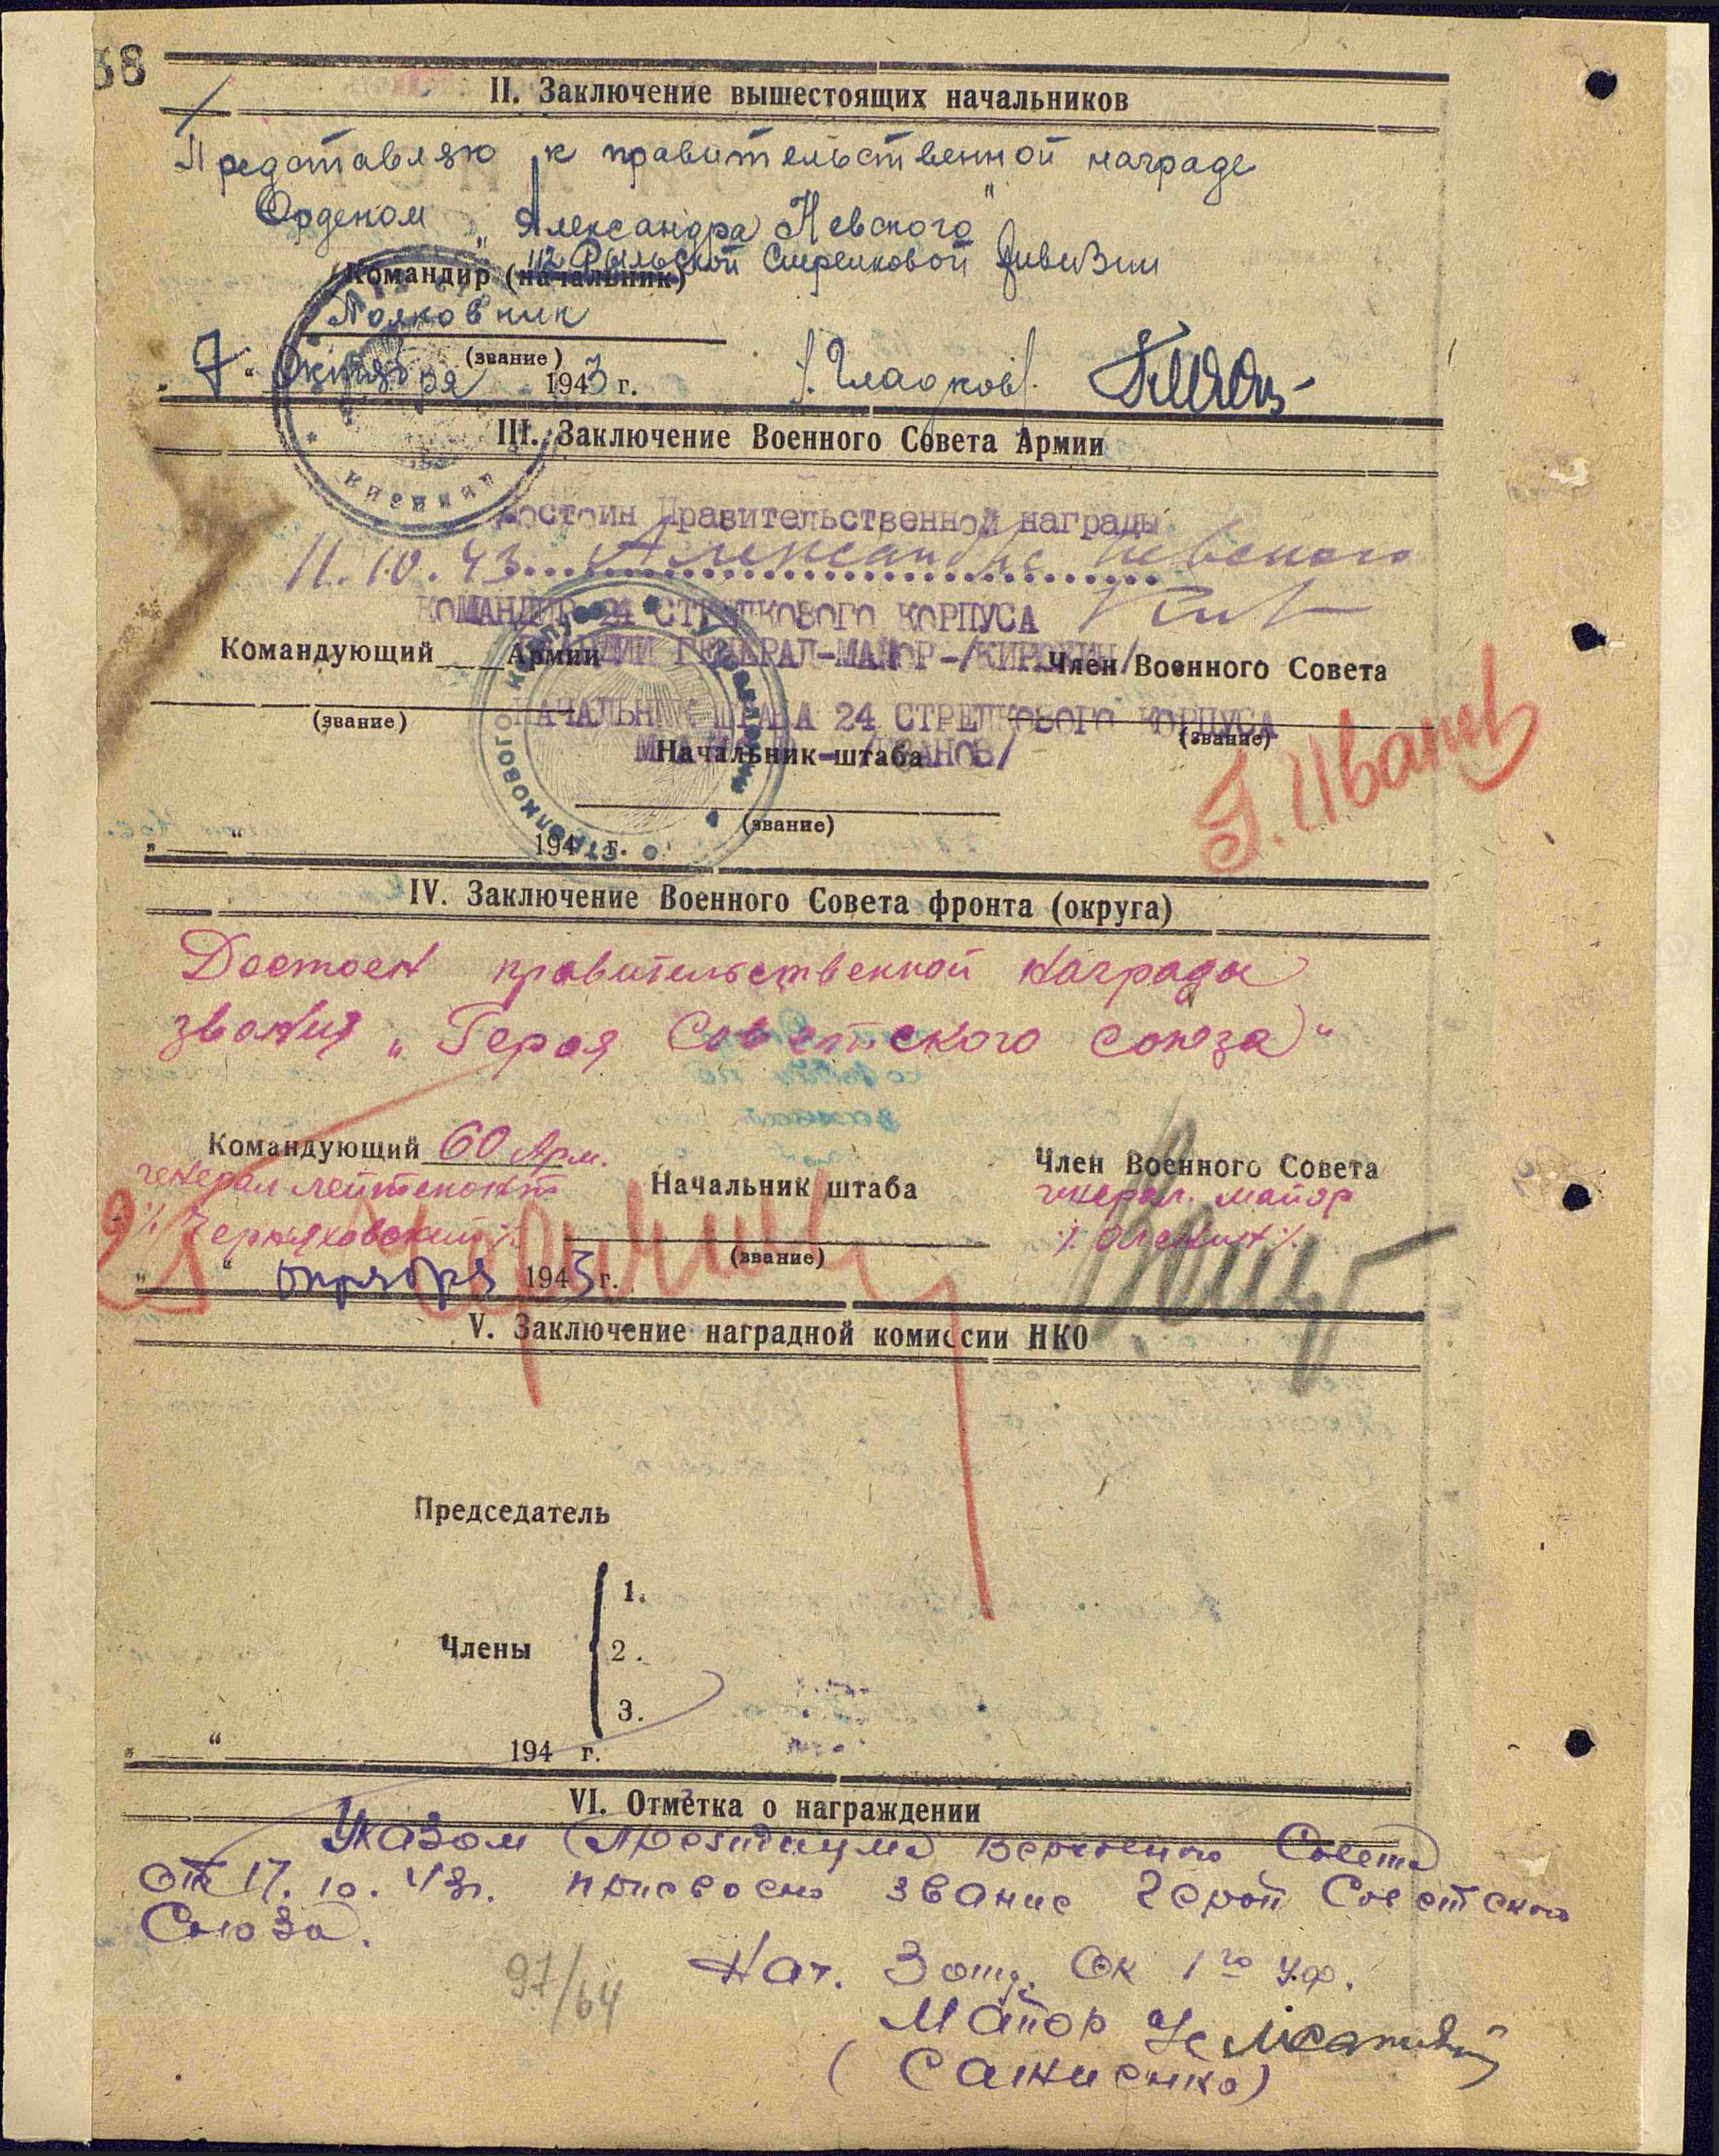 38
II. Заключение вышестоящих начальников
Представляю к правительственной награде
Орденом „Александра Невского"
112 Рыльской Стрелковой Дивизии
Командир (начальник)
Полковник
(звание)
„7" Октября 1943 г. /Гладков/.
III. Заключение Военного Совета Армии
Достоин Правительственной награды
11.10.43 Александра Невского
КОМАНДИР 24 СТРЕЛКОВОГО КОРПУСА
ГВАРДИИ ГЕНЕРАЛ-МАЙОР-/КИРЮХИН/
Командующий Армии Член Военного Совета
НАЧАЛЬНИК ШТАБА 24 СТРЕЛКОВОГО КОРПУСА
(звание) (звание)
Начальник штаба /ИВАНОВ/
Г. Иванов
(звание)
„ " 194 г.
IV. Заключение Военного Совета фронта (округа)
Достоен правительственной награды
звания „Героя Советского союза"
Командующий 60 Арм. Член Военного Совета
генерал лейтенант Начальник штаба генерал. майор
/. Черняховский /. /. Оленин /.
(звание)
„ " октября 1943 г.
V. Заключение наградной комиссии НКО
Председатель
1.
Члены 2.
3.
„ " 194 г.
VI. Отметка о награждении
Указом Президиума Верховного Совета
от 17.10.43г. присвоено звание Герой Советского
Союза.
97/64
Нач. 3 отд. ОК 1го У.Ф.
Майор
(Сажиенко)